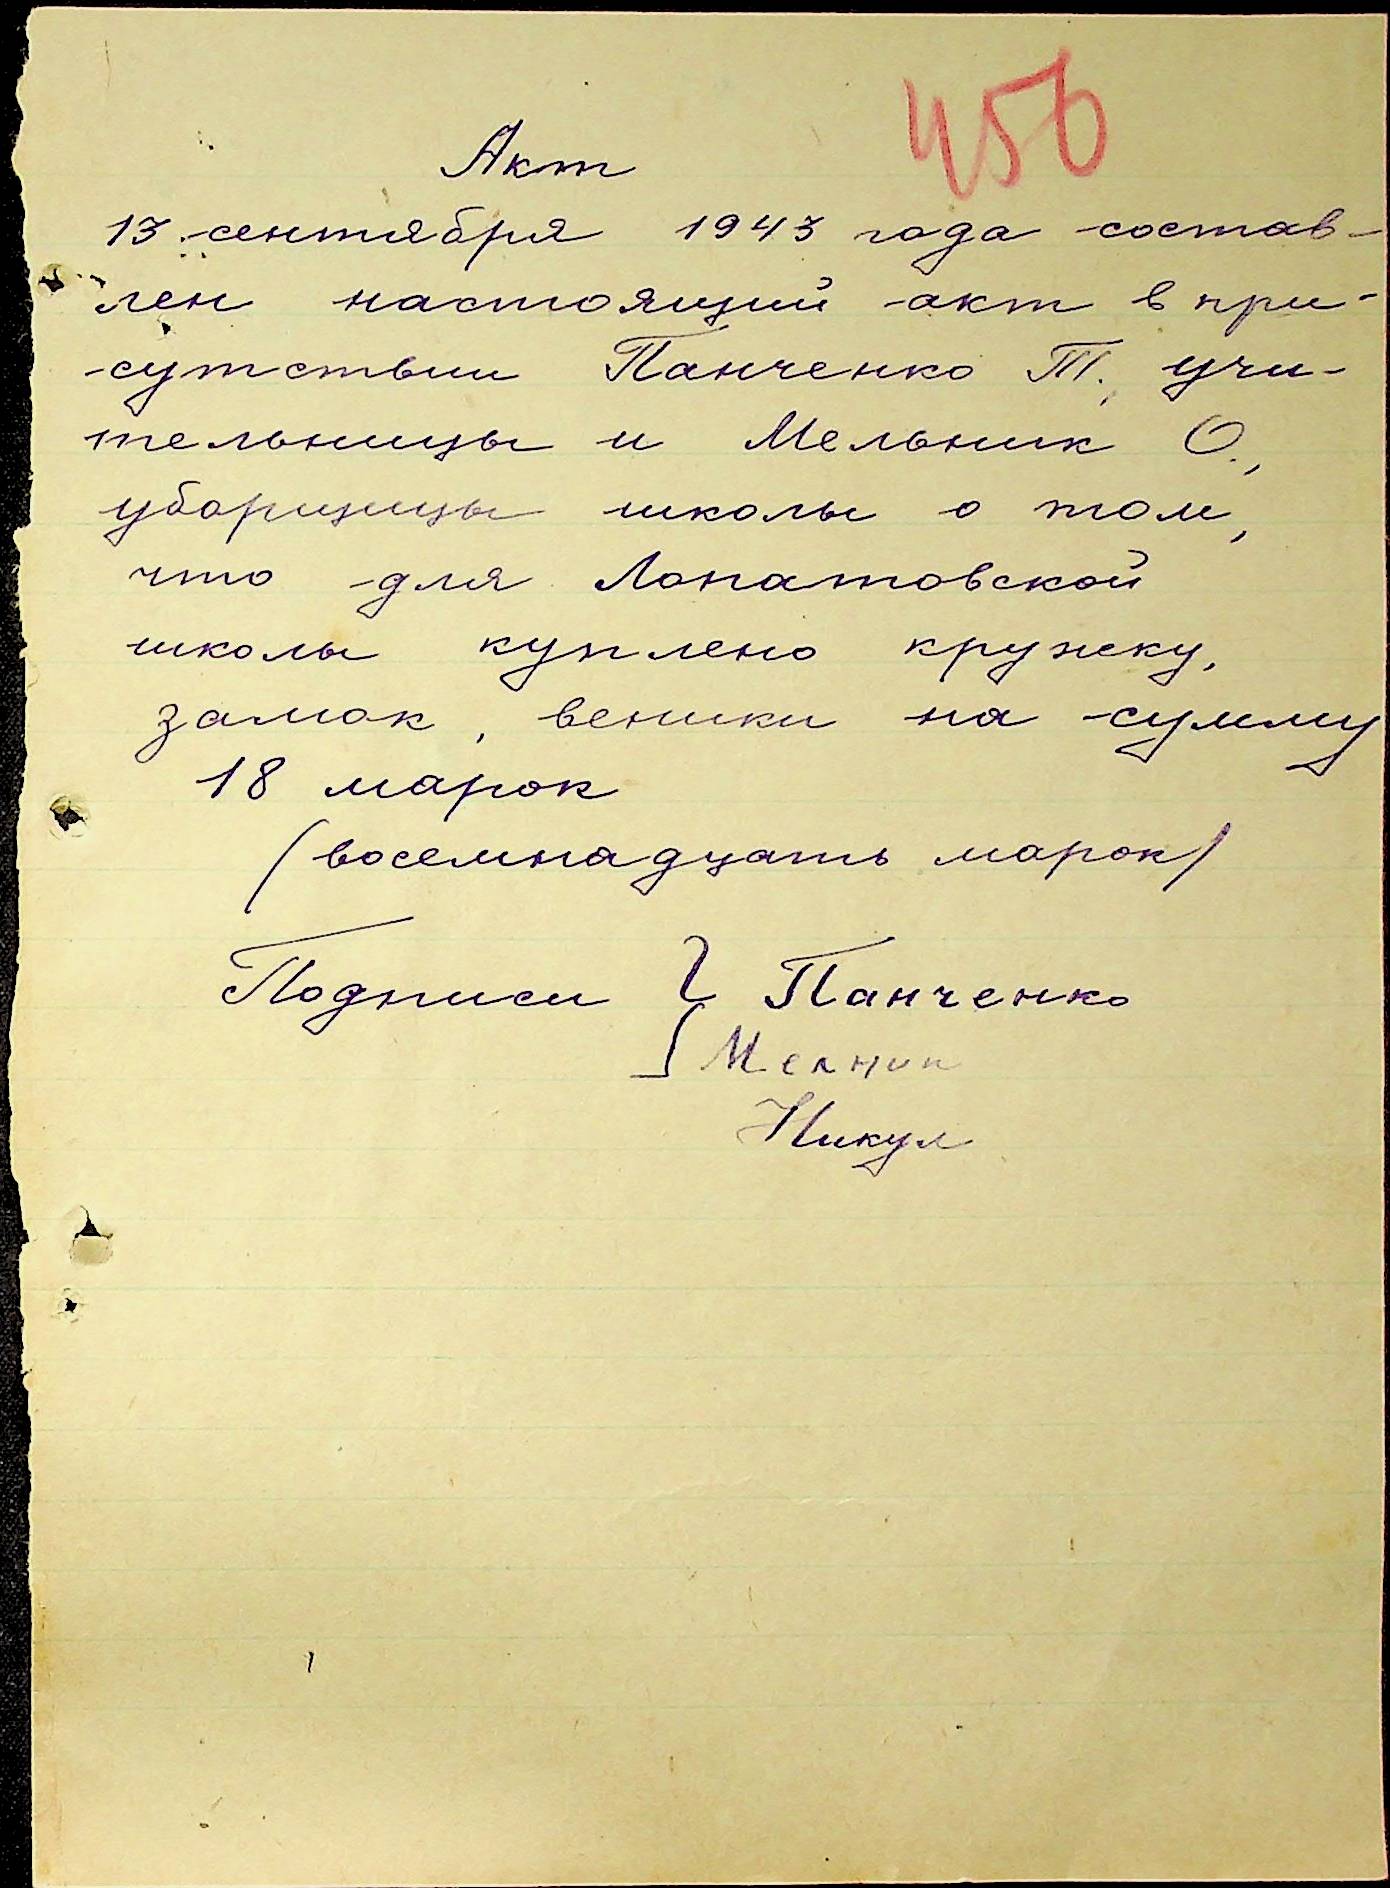 456
Акт
13 сентября 1943 года состав-
лен настоящий акт в при-
сутствии Панченко Т., учи-
тельницы и Мельник О.,
уборщицы школы о том,
что для Лопатовской
школы куплено кружку,
замок, веники на сумму
18 марок
(восемнадцать марок)
Подписи } Панченко
Мелник
Никул